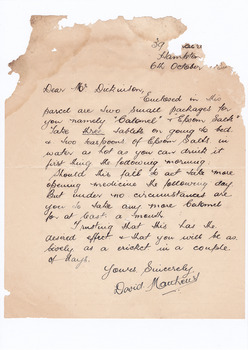 39
Hampton
6th October
Dear Mr Dickinson,
Enclosed in this
parcel are two small packages for
you namely "Calomel" & Epsom Salts
Take three tablets on going to bed
& two teaspoons of Epsom Salts in
water as hot as you can drink it
first thing the following morning
Should this fail to act take more
opening medicine the following day.
But under no circumstances are
you to take any more Calomel
for at least a month
Trusting that this has the
desired effect & that you will be as
lively as a cricket in a couple
of days.
Yours Sincerely
David